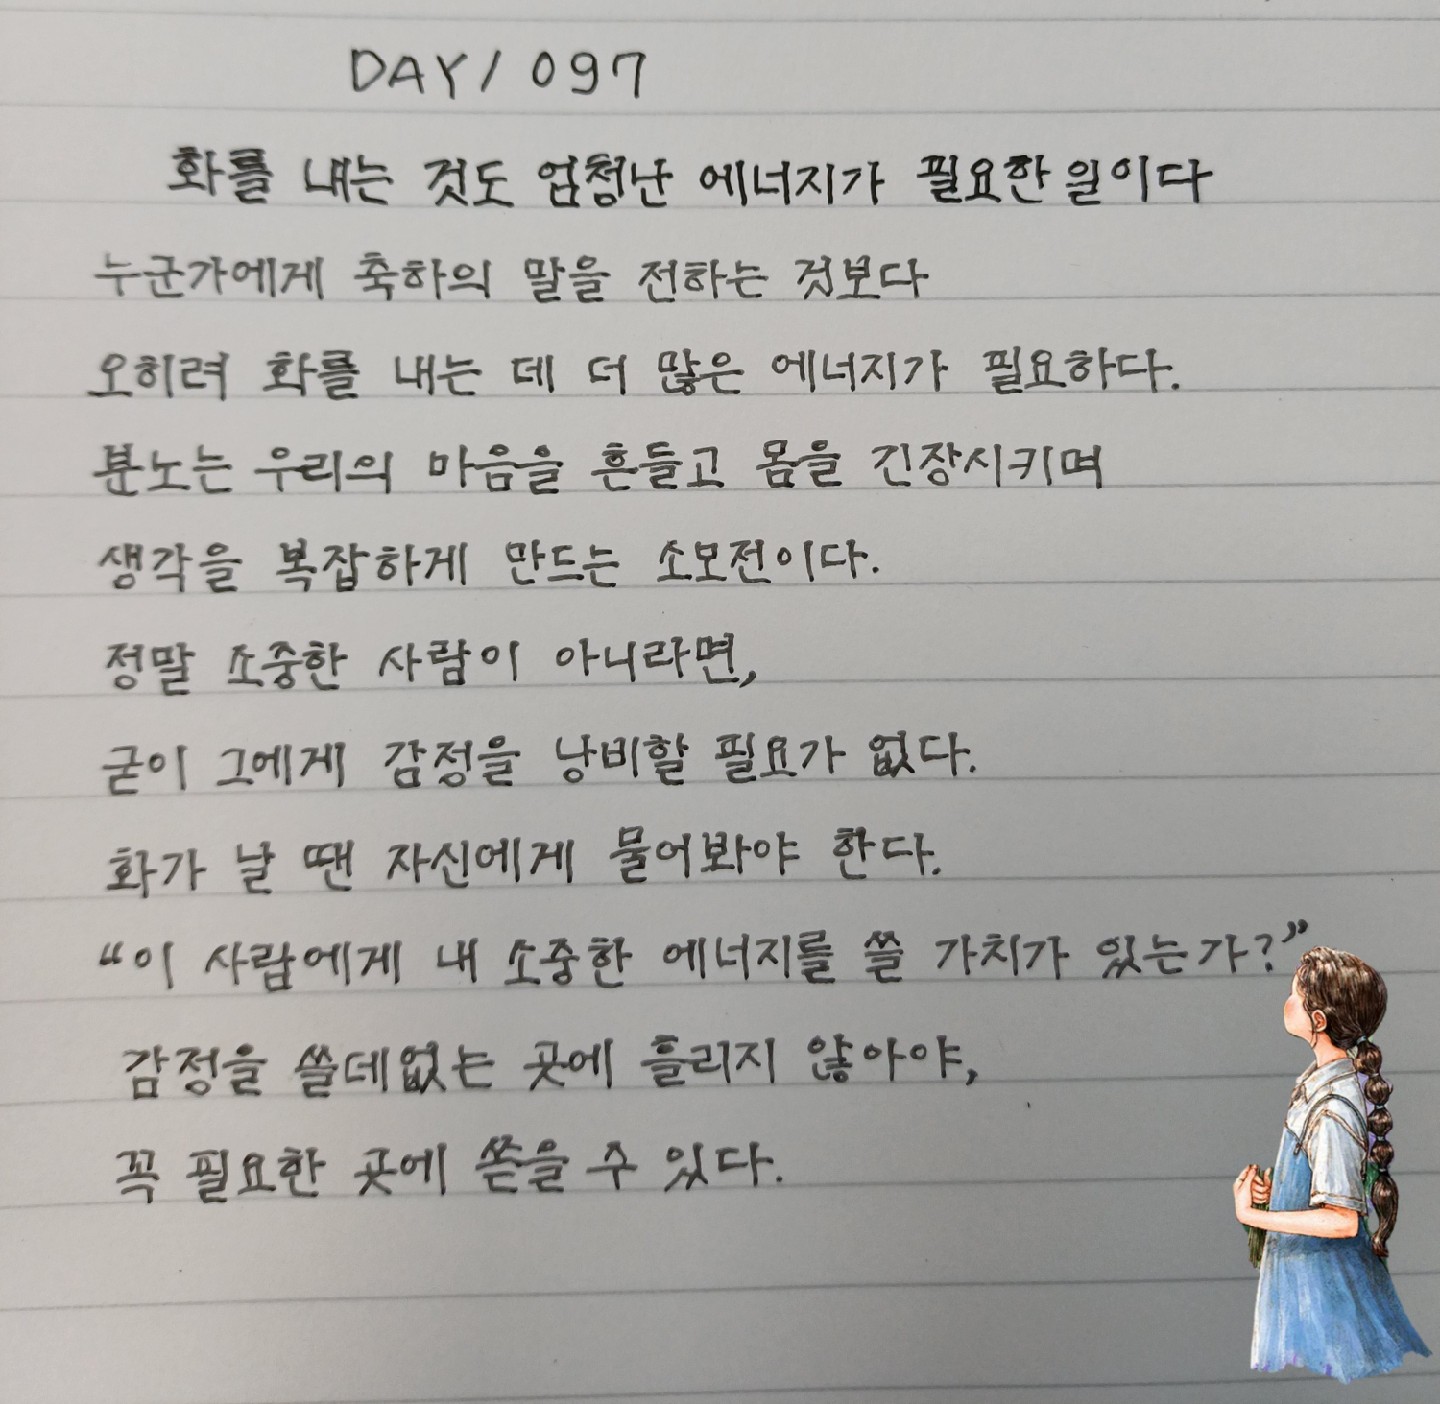 DAY/097
화를 내는 것도 엄청난 에너지가 필요한 일이다
누군가에게 축하의 말을 전하는 것보다
오히려 화를 내는 데 더 많은 에너지가 필요하다.
분노는 우리의 마음을 흔들고 몸을 긴장시키며
생각을 복잡하게 만드는 소모전이다.
정말 소중한 사람이 아니라면,
굳이 그에게 감정을 낭비할 필요가 없다.
화가 날 땐 자신에게 물어봐야 한다.
“이 사람에게 내 소중한 에너지를 쓸 가치가 있는가?”
감정을 쓸데없는 곳에 흘리지 않아야,
꼭 필요한 곳에 쏟을 수 있다.